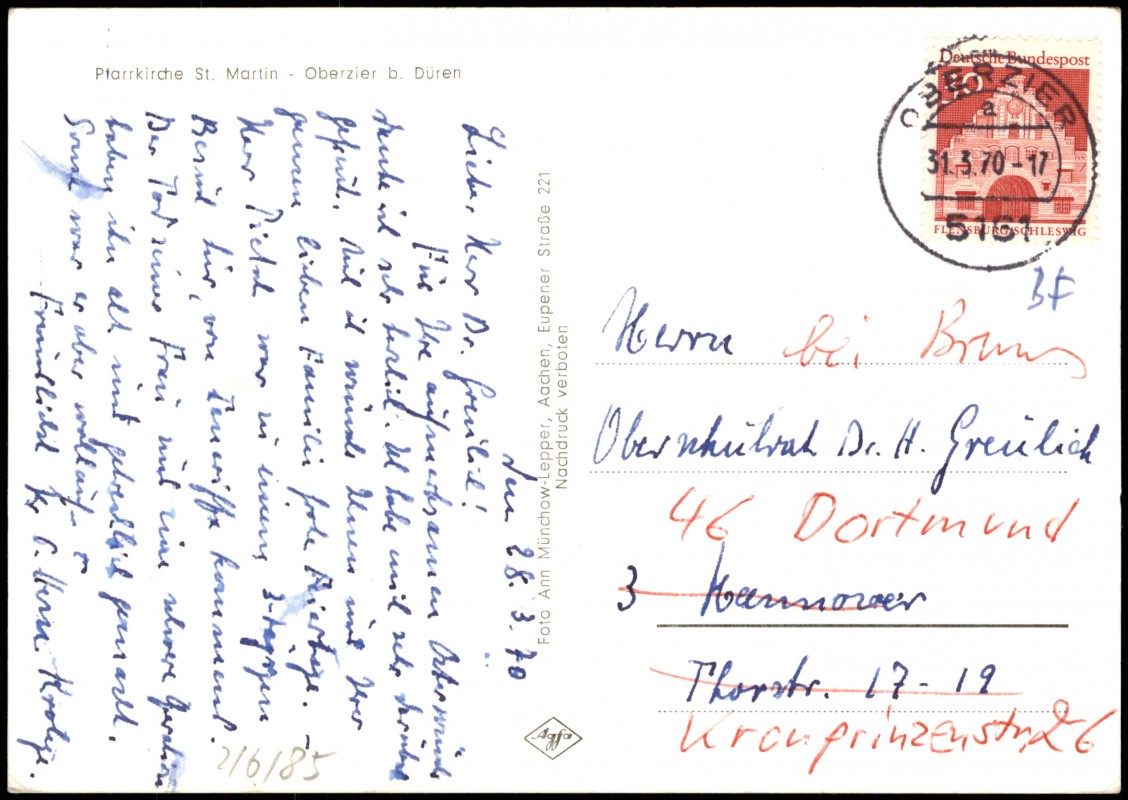 Pfarrkirche St. Martin - Oberzier b. Düren
den 28.3.70
Lieber Herr Dr. Greülich!
Für Ihre aufmerksamen Osterwünsche
danke ich sehr herzlich. Ich habe mich sehr darüber
gefreut. Auch ich wünsche Ihnen und Ihrer
ganzen lieben Familie frohe Feiertage. –
Herr war zu einem 3-tägigen
Besuch hier, von Teneriffa kommend.
Der Tod seiner Frau und eine schwere Operation
haben ihn alt und gebrechlich gemacht.
Sonst war er aber wohlauf.
Freundlichst Ihr
Foto Ann Münchow-Lepper, Aachen, Eupener Straße 221
Nachdruck verboten
Deutsche Bundespost
FLENSBURG/SCHLESWIG
OBERZIER
a
31.3.70-17
5161
BF
Herrn bei Bruns
Oberschulrat Dr. H. Greülich
46 Dortmund
3 Hannover
Thorstr. 17-19
Kronprinzenstr. 26
Agfa
2/6/85